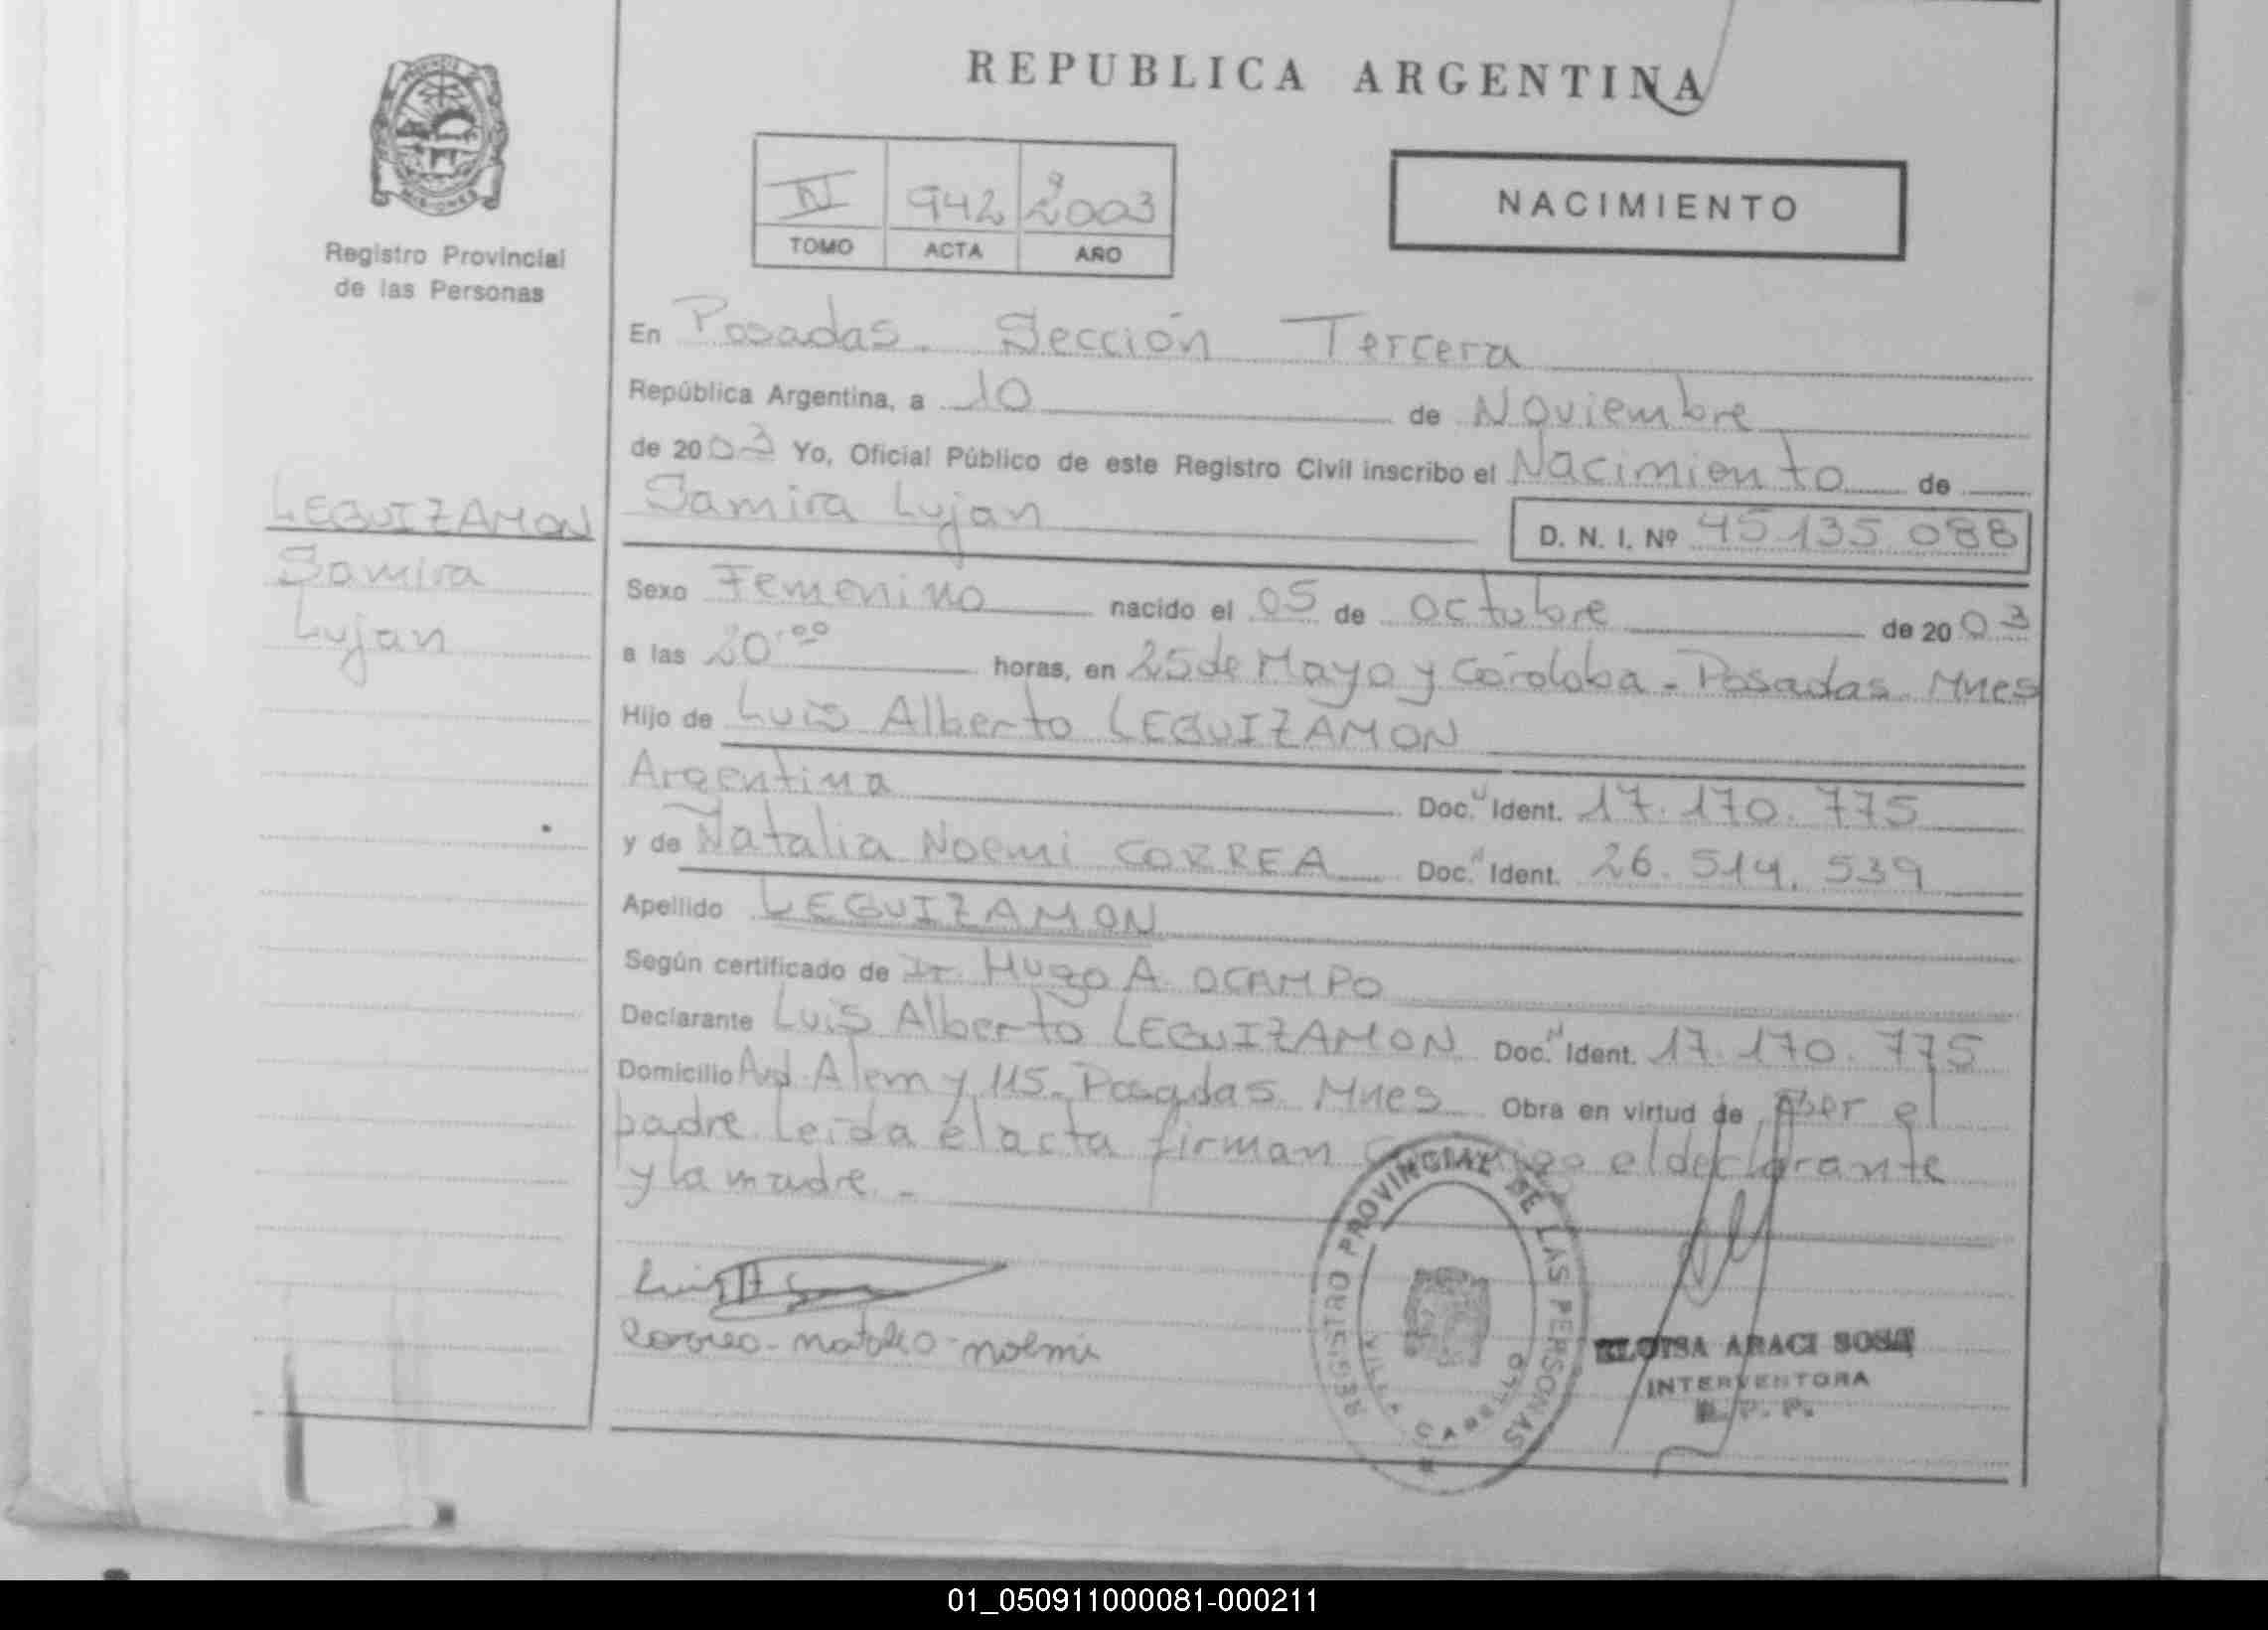 REPUBLICA ARGENTINA
PROVINCIA DE
MISIONES
Registro Provincial
de las Personas
IV 942 2003
TOMO ACTA AÑO
NACIMIENTO
En Posadas. Sección Tercera
República Argentina, a 10 de Noviembre
de 2003 Yo, Oficial Público de este Registro Civil inscribo el Nacimiento de
Samira Lujan
D. N. I. Nº 45 135 088
LEGUIZAMON
Samira
Lujan
Sexo Femenino nacido el 05 de octubre de 2003
a las 20:00 horas, en 25 de Mayo y Córdoba - Posadas Mnes
Hijo de Luis Alberto LEGUIZAMON
Argentina Doc. Ident. 17.170.775
y de Natalia Noemi CORREA Doc. Ident. 26.514.539
Apellido LEGUIZAMON
Según certificado de Dr. Hugo A. OCAMPO
Declarante Luis Alberto LEGUIZAMON Doc. Ident. 17.170.775
Domicilio Avd. Alem y 115. Posadas Mnes Obra en virtud de ser el
padre. Leída el acta firman conmigo el declarante
y la madre. -
Correa - natalia - noemi
REGISTRO PROVINCIAL DE LAS PERSONAS
VILLA CABELLO
ELOISA ARACI SOSA
INTERVENTORA
R. P. P.
01_050911000081-000211